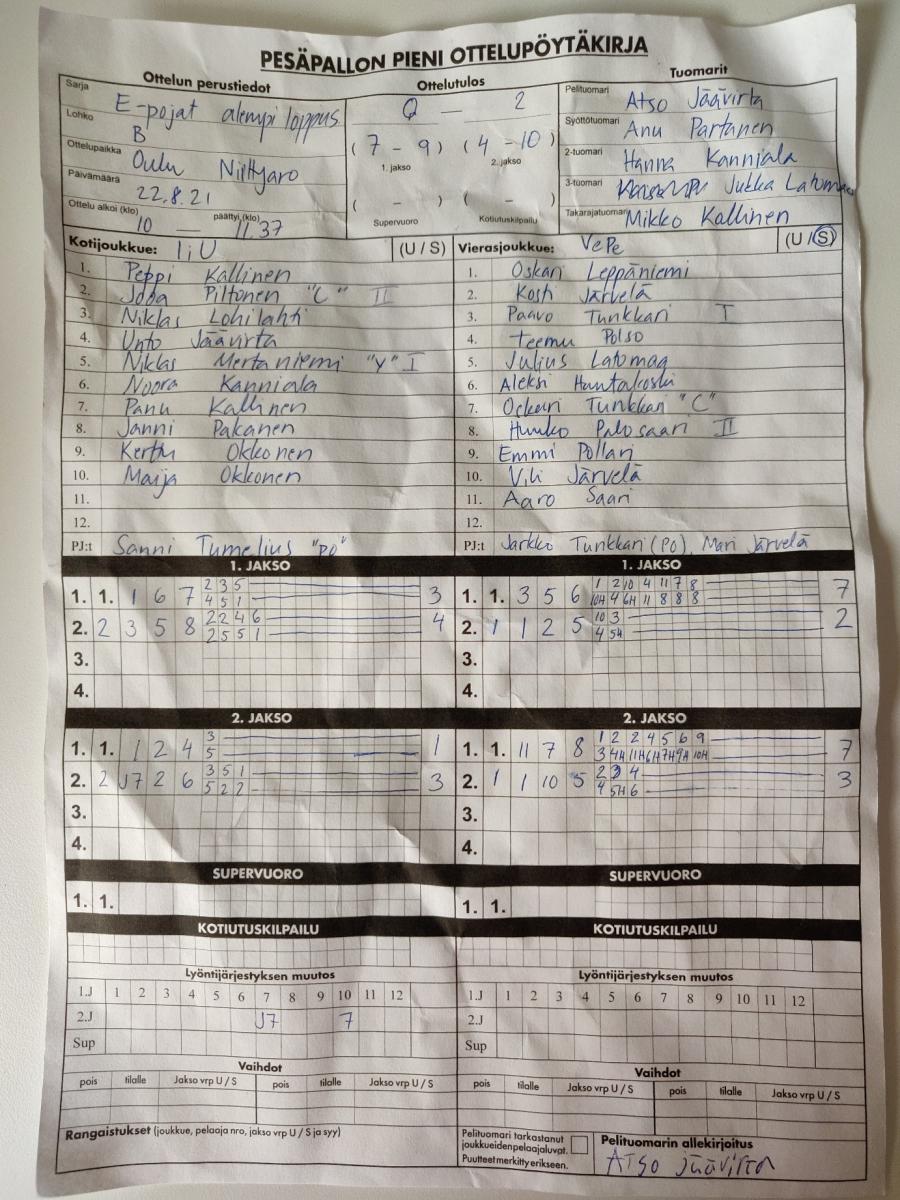 PESÄPALLON PIENI OTTELUPÖYTÄKIRJA
Ottelun perustiedot
Sarja E-pojat alempi loppus.
Lohko B
Ottelupaikka Oulu Niittyaro
Päivämäärä 22.8.21
Ottelu alkoi (klo) 10 — päättyi (klo) 11.37
Ottelutulos
0 — 2
(7 - 9) (4 - 10)
1. jakso 2. jakso
( - ) ( - )
Supervuoro Kotiutuskilpailu
Tuomarit
Pelituomari Atso Jäävirta
Syöttötuomari Anu Partanen
2-tuomari Hanna Kanniala
3-tuomari Jukka Latomaa
Takarajatuomari Mikko Kallinen
Kotijoukkue: IiU (U / S)
1. Peppi Kallinen
2. Joba Piltonen "C" II
3. Niklas Lohilahti
4. Unto Jäävirta
5. Niklas Mertaniemi "Y" I
6. Noora Kanniala
7. Panu Kallinen
8. Janni Pakanen
9. Kerttu Okkonen
10. Maija Okkonen
11.
12.
PJ:t Sanni Tumelius "PO"
Vierasjoukkue: VePe (U / S)
1. Oskari Leppäniemi
2. Kosti Järvelä
3. Paavo Tunkkari I
4. Teemu Polso
5. Julius Latomaa
6. Aleksi Huntakoski
7. Oskari Tunkkari "C"
8. Huuko Palosaari II
9. Emmi Pollari
10. Vili Järvelä
11. Aaro Saari
12.
PJ:t Jarkko Tunkkari (PO), Mari Järvelä
1. JAKSO
1. 1. 1 6 7 2 3 5 3
4 5 1
2. 2 3 5 8 2 2 4 6 4
2 5 5 1
3.
4.
1. JAKSO
1. 1. 3 5 6 1 2 10 4 11 7 8 7
10H 4 6H 11 8 8 8
2. 1 1 2 5 10 3 2
4 5H
3.
4.
2. JAKSO
1. 1. 1 2 4 3 1
5
2. 2 J7 2 6 3 5 1 3
5 2 2
3.
4.
2. JAKSO
1. 1. 11 7 8 1 2 2 4 5 6 9 7
3 4H 11H 6H 7H 9H 10H
2. 1 1 10 5 2 3 4 3
4 5H 6
3.
4.
SUPERVUORO
1. 1.
SUPERVUORO
1. 1.
KOTIUTUSKILPAILU
KOTIUTUSKILPAILU
Lyöntijärjestyksen muutos
1.J 1 2 3 4 5 6 7 8 9 10 11 12
2.J J7 7
Sup
Lyöntijärjestyksen muutos
1.J 1 2 3 4 5 6 7 8 9 10 11 12
2.J
Sup
Vaihdot
pois tilalle Jakso vrp U / S pois tilalle Jakso vrp U / S
Vaihdot
pois tilalle Jakso vrp U / S pois tilalle Jakso vrp U / S
Rangaistukset (joukkue, pelaaja nro, jakso vrp U / S ja syy)
Pelituomari tarkastanut
joukkueiden pelaajaluvat.
Puutteet merkitty erikseen.
Pelituomarin allekirjoitus
Atso Jäävirta